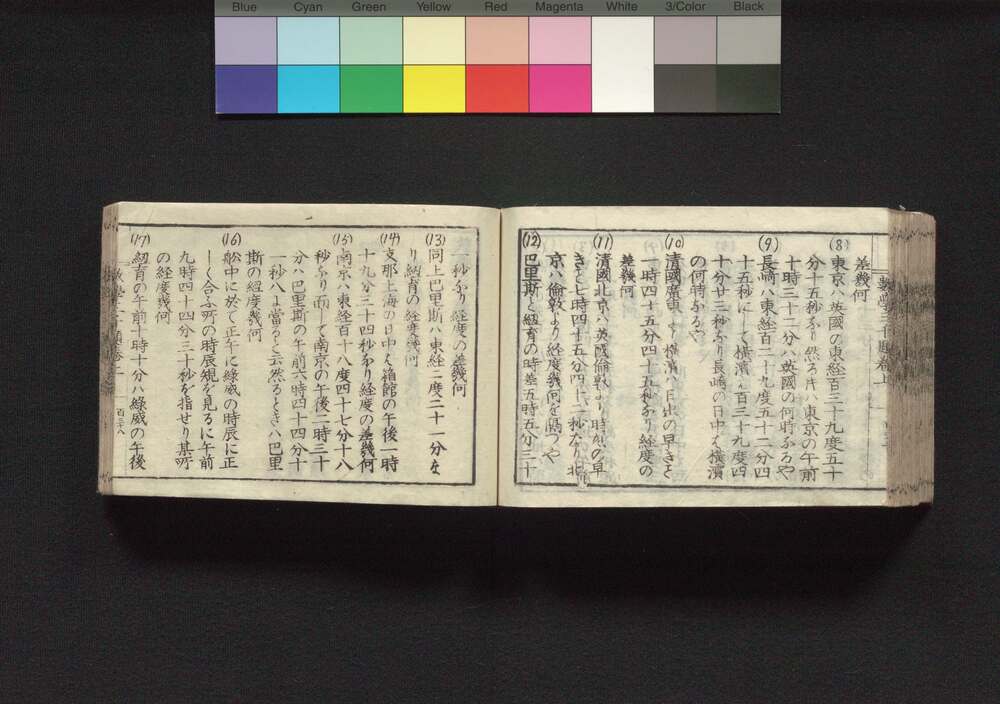 Blue Cyan Green Yellow Red Magenta White 3/Color Black
差幾何
(8) 東京ハ英國の東経百三十九度五十
分十五秒なり然る片ハ東京の午前
十時三十二分ハ英國の何時なるや
(9) 長崎ハ東経百二十九度五十二分四
十五秒にして横濱ハ百三十九度四
十分廿三秒なり長崎の日中ハ横濱
の何時なるや
(10) 清國廣東より横濱ハ日出の早きと
一時四十五分四十五秒なり経度の
差幾何
(11) 清國北京ハ英國倫敦より時刻の早
きと七時四十五分四十二秒なり北
京ハ倫敦より経度幾何を隔つや
(12) 巴里斯と紐育の時差五時五分三十
一秒なり経度の差幾何
(13) 同上巴里斯ハ東経二度二十一分な
り紐育の経度幾何
(14) 支那上海の日中ハ箱館の午後一時
十九分三十四秒なり経度の差幾何
(15) 南京ハ東経百十八度四十七分十八
秒なり而して南京の午後二時三十
分ハ巴里斯の午前六時四十四分十
一秒八に當ると云然るときハ巴里
斯の経度幾何
(16) 舩中に於て正午に綠威の時辰に正
しく合ふ所の時辰規を見るに午前
九時四十四分三十秒を指せり其所
の経度幾何
(17) 紐育の午前十時十分ハ綠威の午後